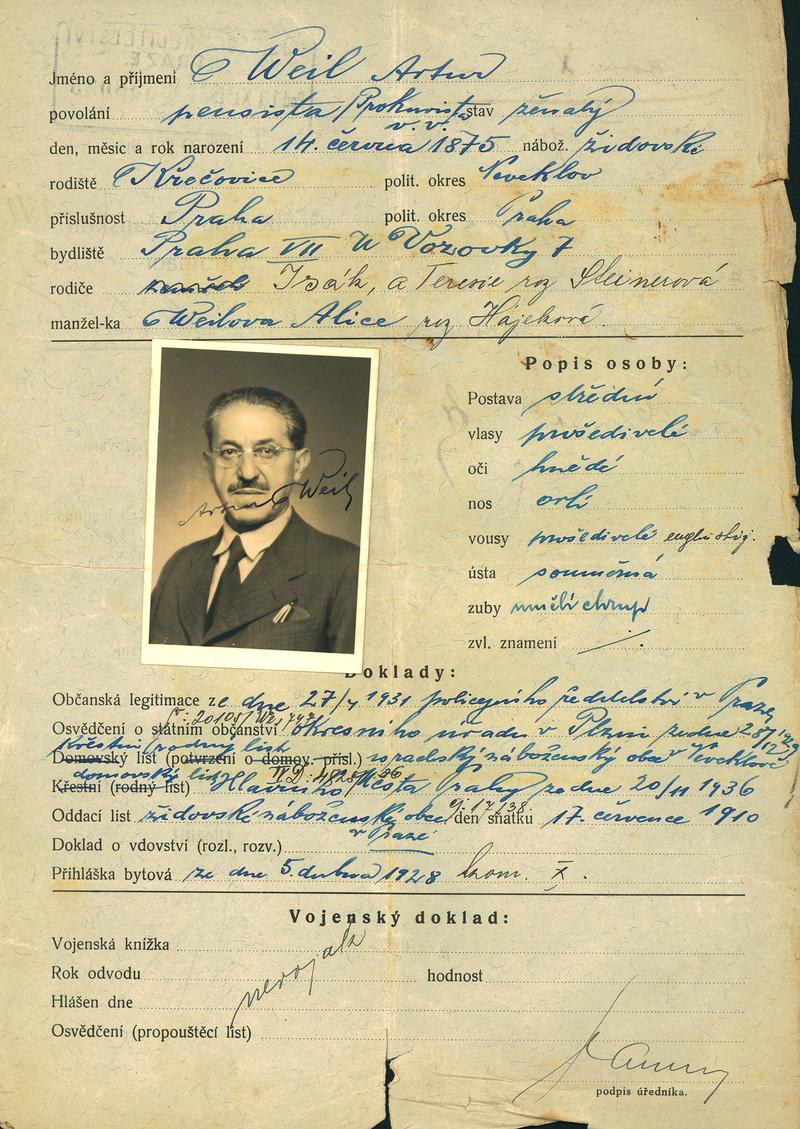 Jméno a příjmení Weil Artur
povolání pensista / Prokurista v. v. stav ženatý
den, měsíc a rok narození 14. června 1875 nábož. židovské
rodiště Křečovice polit. okres Neveklov
příslušnost Praha polit. okres Praha
bydliště Praha VII U Vozovky 7
rodiče Isák, a Teresie roz Steinerová
manžel-ka Weilova Alice roz Hájeková.
Popis osoby:
Postava střední
vlasy prošedivělé
oči hnědé
nos orlí
vousy prošedivělé
ústa souměrná
zuby umělý chrup
zvl. znamení /.
Artur Weil
Doklady:
Občanská legitimace ze dne 27/ 1931 policejního ředitelství v Praze
Osvědčení o státním občanství okresního úřadu v Plzni ze dne
Křestní rodný list
Domovský list (potvrzení o domov. přísl.) israelský náboženský obce v Neveklově
domovský list
Křestní (rodný list) Hlavního města Prahy ze dne 20/11 1936
Oddací list židovské náboženský obce v Praze den sňatku 17. července 1910
Doklad o vdovství (rozl., rozv.)
Přihláška bytová ze dne 5. dubna 1928 kom. X.
Vojenský doklad:
Vojenská knížka
nevoják
Rok odvodu hodnost
Hlášen dne
Osvědčení (propouštěcí list)
podpis úředníka.